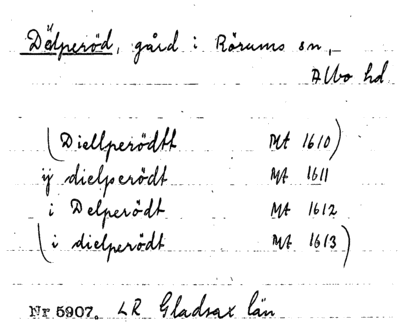 Dälperöd, gård i Rörums sn,
Albo hd
(Diellperödtt Mt 1610)
ij dielperödt Mt 1611
i Delperödt Mt 1612
(i dielperödt Mt 1613)
Nr 5907. LR Gladsax län